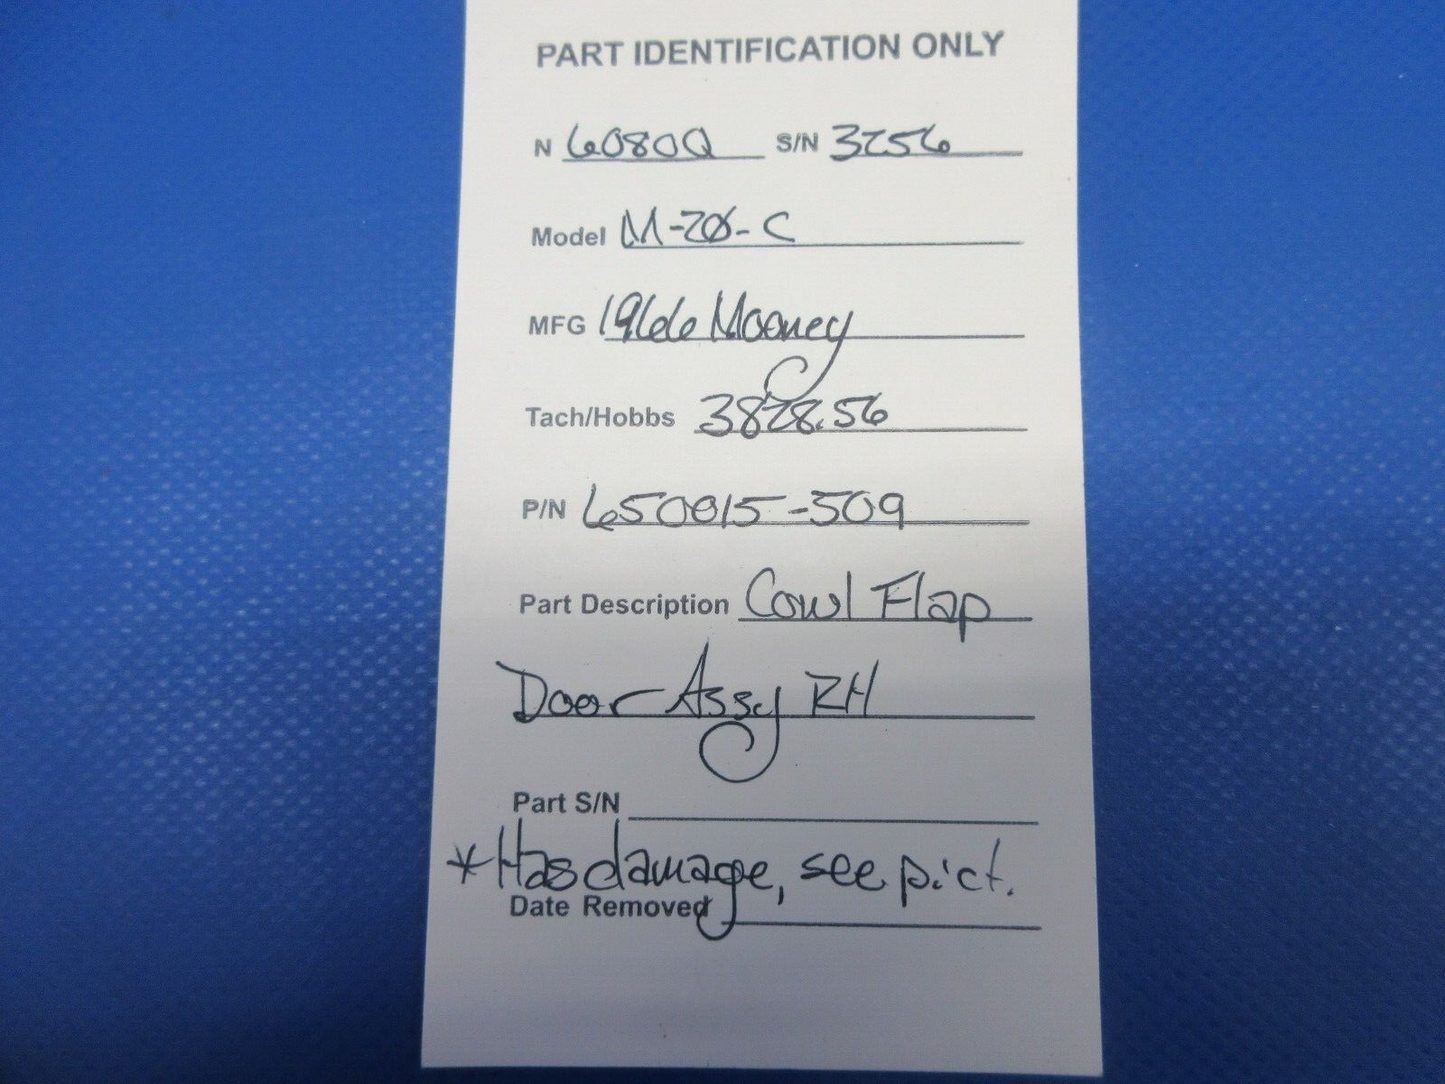 PART IDENTIFICATION ONLY
N 6080Q S/N 3256
Model M-20-C
MFG 1966 Mooney
Tach/Hobbs 3828.56
P/N 650015-509
Part Description Cowl Flap
Door Assy RH
Part S/N
*Has damage, see pict.
Date Removed